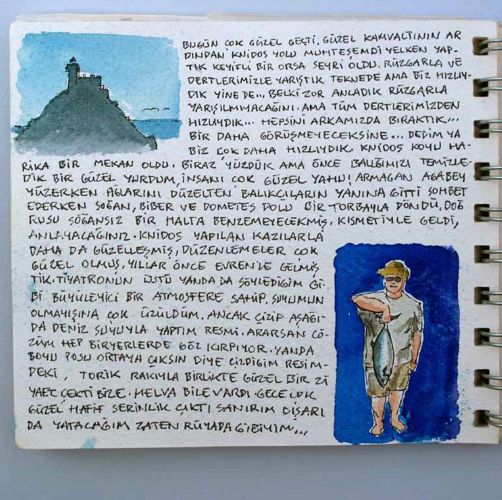 BUGÜN ÇOK GÜZEL GEÇTİ. GÜZEL KAHVALTININ AR
DINDAN KNİDOS YOLU MUHTEŞEMDİ YELKEN YAP-
TIK KEYİFLİ BİR ORSA SEYRİ OLDU. RÜZGARLA VE
DERTLERİMİZLE YARIŞTIK TEKNEDE AMA BİZ HIZLIY-
DIK YİNE DE... BELKİ ZOR ANLADIK RÜZGARLA
YARIŞILMIYACAĞINI. AMA TÜM DERTLERİMİZDEN
HIZLIYDIK... HEPSİNİ ARKAMIZDA BIRAKTIK...
BİR DAHA GÖRÜŞMEYECEKSİNE... DEDİM YA
BİZ ÇOK DAHA HIZLIYDIK. KNİDOS KOYU HA-
RİKA BİR MEKAN OLDU. BİRAZ YÜZDÜK AMA ÖNCE BALIĞIMIZI TEMİZLE-
DİK BİR GÜZEL YURDUM, İNSANI ÇOK GÜZEL YAHU! ARMAGAN AGABEY
YÜZERKEN AĞLARINI DÜZELTEN BALIKÇILARIN YANINA GİTTİ SOHBET
EDERKEN SOĞAN, BİBER VE DOMETES DOLU BİR TORBAYLA DÖNDÜ, DOĞ
RUSU SOĞANSIZ BİR HALTA BENZEMEYECEKMİŞ, KISMETİYLE GELDİ,
ANLAYACAĞINIZ. KNİDOS YAPILAN KAZILARLA
DAHA DA GÜZELLEŞMİŞ, DÜZENLEMELER ÇOK
GÜZEL OLMUŞ. YILLAR ÖNCE EVREN'LE GELMİŞ
TİK. TİYATRONUN ÜSTÜ YANDA DA SÖYLEDİGİM Gİ
Bİ BÜYÜLEYİCİ BİR ATMOSFERE SAHİP. SUYUMUN
OLMAYIŞINA ÇOK ÜZÜLDÜM. ANCAK ÇİZİP AŞAĞI-
DA DENİZ SUYUYLA YAPTIM RESMİ. ARARSAN ÇÖ-
ZÜM HEP BİRYERLERDE GÖZ KIRPIYOR. YANDA
BOYU POSU ORTAYA ÇIKSIN DİYE ÇİZDİGİM RESİM-
DEKİ, TORİK RAKIYLA BİRLİKTE GÜZEL BİR Zİ
YAFET ÇEKTİ BİZE. HELVA BİLE VARDI. GECE ÇOK
GÜZEL HAFİF SERİNLİK ÇIKTI SANIRIM DIŞARI
DA YATACAĞIM ZATEN RÜYADA GİBİYİM...